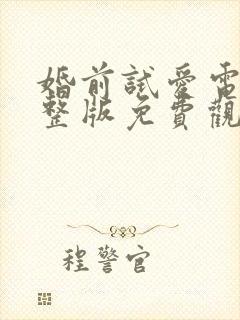 婚前試愛電
整版免費觀
程警官